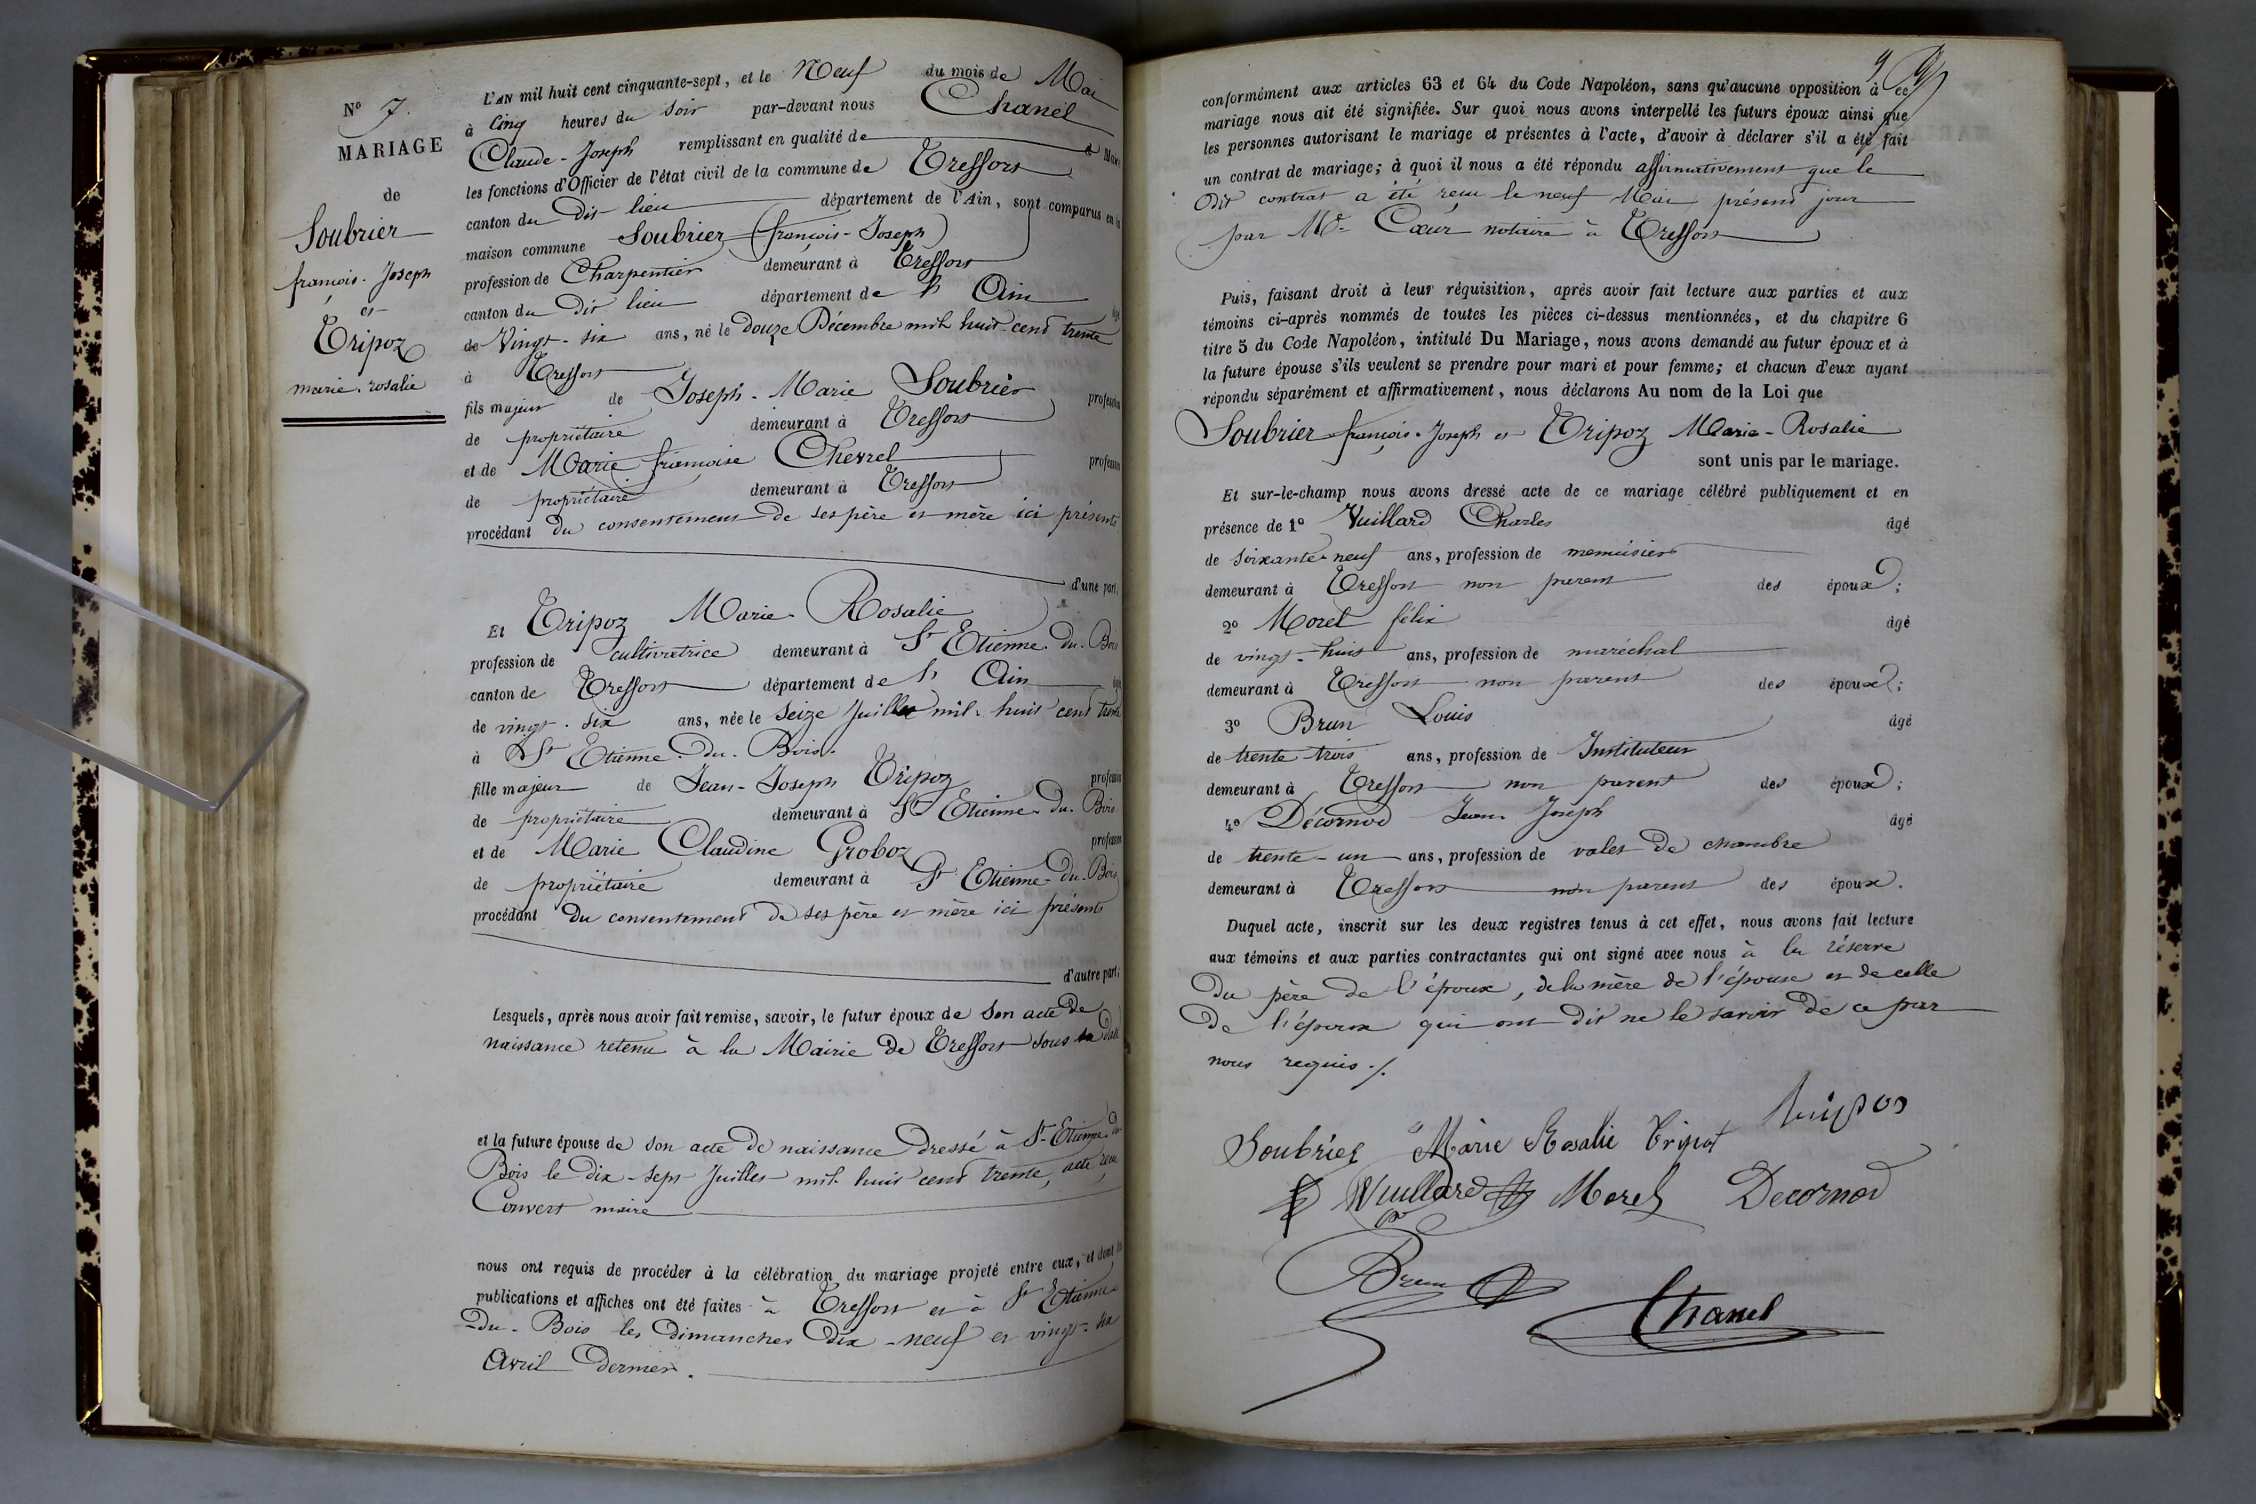 N° 7.
MARIAGE
de
Soubrier
françois. Joseph
et
Tripoz
marie. rosalie
L'AN mil huit cent cinquante-sept, et le Neuf du mois de Mai
à Cinq heures du soir par-devant nous Chanel
Claude-Joseph remplissant en qualité de Maire
les fonctions d'Officier de l'état civil de la commune de Treffort
canton du Dit lieu département de l'Ain, sont comparus en la
maison commune Soubrier (françois-Joseph)
profession de Charpentier demeurant à Treffort
canton du Dit lieu département de l'Ain âgé
de Vingt-six ans, né le douze Décembre mil huit cent trente
à Treffort
fils majeur de Joseph-Marie Soubrier profession
de propriétaire demeurant à Treffort
et de Marie françoise Chevrel profession
de propriétaire demeurant à Treffort
procédant du consentement de ses père et mère ici présents
d'une part,
Et Tripoz Marie-Rosalie
profession de cultivatrice demeurant à St Etienne-du-Bois
canton de Treffort département de l'Ain âgé
de vingt-six ans, née le seize Juillet mil huit cent trente
à St Etienne-du-Bois.
fille majeur de Jean-Joseph Tripoz profession
de propriétaire demeurant à St Etienne-du-Bois
et de Marie Claudine Groboz profession
de propriétaire demeurant à St Etienne-du-Bois
procédant du consentement de ses père et mère ici présents
d'autre part;
Lesquels, après nous avoir fait remise, savoir, le futur époux de son acte de
naissance retenu à la Mairie de Treffort sous sa date
et la future épouse de son acte de naissance dressé à St-Etienne-du
Bois le dix-sept Juillet mil huit cent trente, acte, reçu
Convert maire
nous ont requis de procéder à la célébration du mariage projeté entre eux, et dont les
publications et affiches ont été faites à Treffort et à St Etienne-
-du-Bois les Dimanches dix-neuf et vingt-six
Avril dernier.
9
conformément aux articles 63 et 64 du Code Napoléon, sans qu'aucune opposition à ce
mariage nous ait été signifiée. Sur quoi nous avons interpellé les futurs époux ainsi que
les personnes autorisant le mariage et présentes à l'acte, d'avoir à déclarer s'il a été fait
un contrat de mariage; à quoi il nous a été répondu affirmativement que le
dit contrat a été reçu le neuf Mai présent jour
par Me Cœur notaire à Treffort
Puis, faisant droit à leur réquisition, après avoir fait lecture aux parties et aux
témoins ci-après nommés de toutes les pièces ci-dessus mentionnées, et du chapitre 6
titre 5 du Code Napoléon, intitulé Du Mariage, nous avons demandé au futur époux et à
la future épouse s'ils veulent se prendre pour mari et pour femme; et chacun d'eux ayant
répondu séparément et affirmativement, nous déclarons Au nom de la Loi que
Soubrier françois-Joseph et Tripoz Marie-Rosalie
sont unis par le mariage.
Et sur-le-champ nous avons dressé acte de ce mariage célébré publiquement et en
présence de 1° Vuillard Charles âgé
de soixante-neuf ans, profession de menuisier
demeurant à Treffort non parent des époux;
2° Morel félix âgé
de vingt-huit ans, profession de maréchal
demeurant à Treffort non parent des époux;
3° Brun Louis âgé
de trente-trois ans, profession de Instituteur
demeurant à Treffort non parent des époux;
4° Décornod Jean Joseph âgé
de trente-un ans, profession de valet de chambre
demeurant à Treffort non parent des époux.
Duquel acte, inscrit sur les deux registres tenus à cet effet, nous avons fait lecture
aux témoins et aux parties contractantes qui ont signé avec nous à la réserve
du père de l'époux, de la mère de l'épouse et de celle
de l'époux qui ont dit ne le savoir de ce par
nous requis./.
Soubrier Marie Rosalie Tripot
Vuillard Morel Decornod
Brun
Chanel